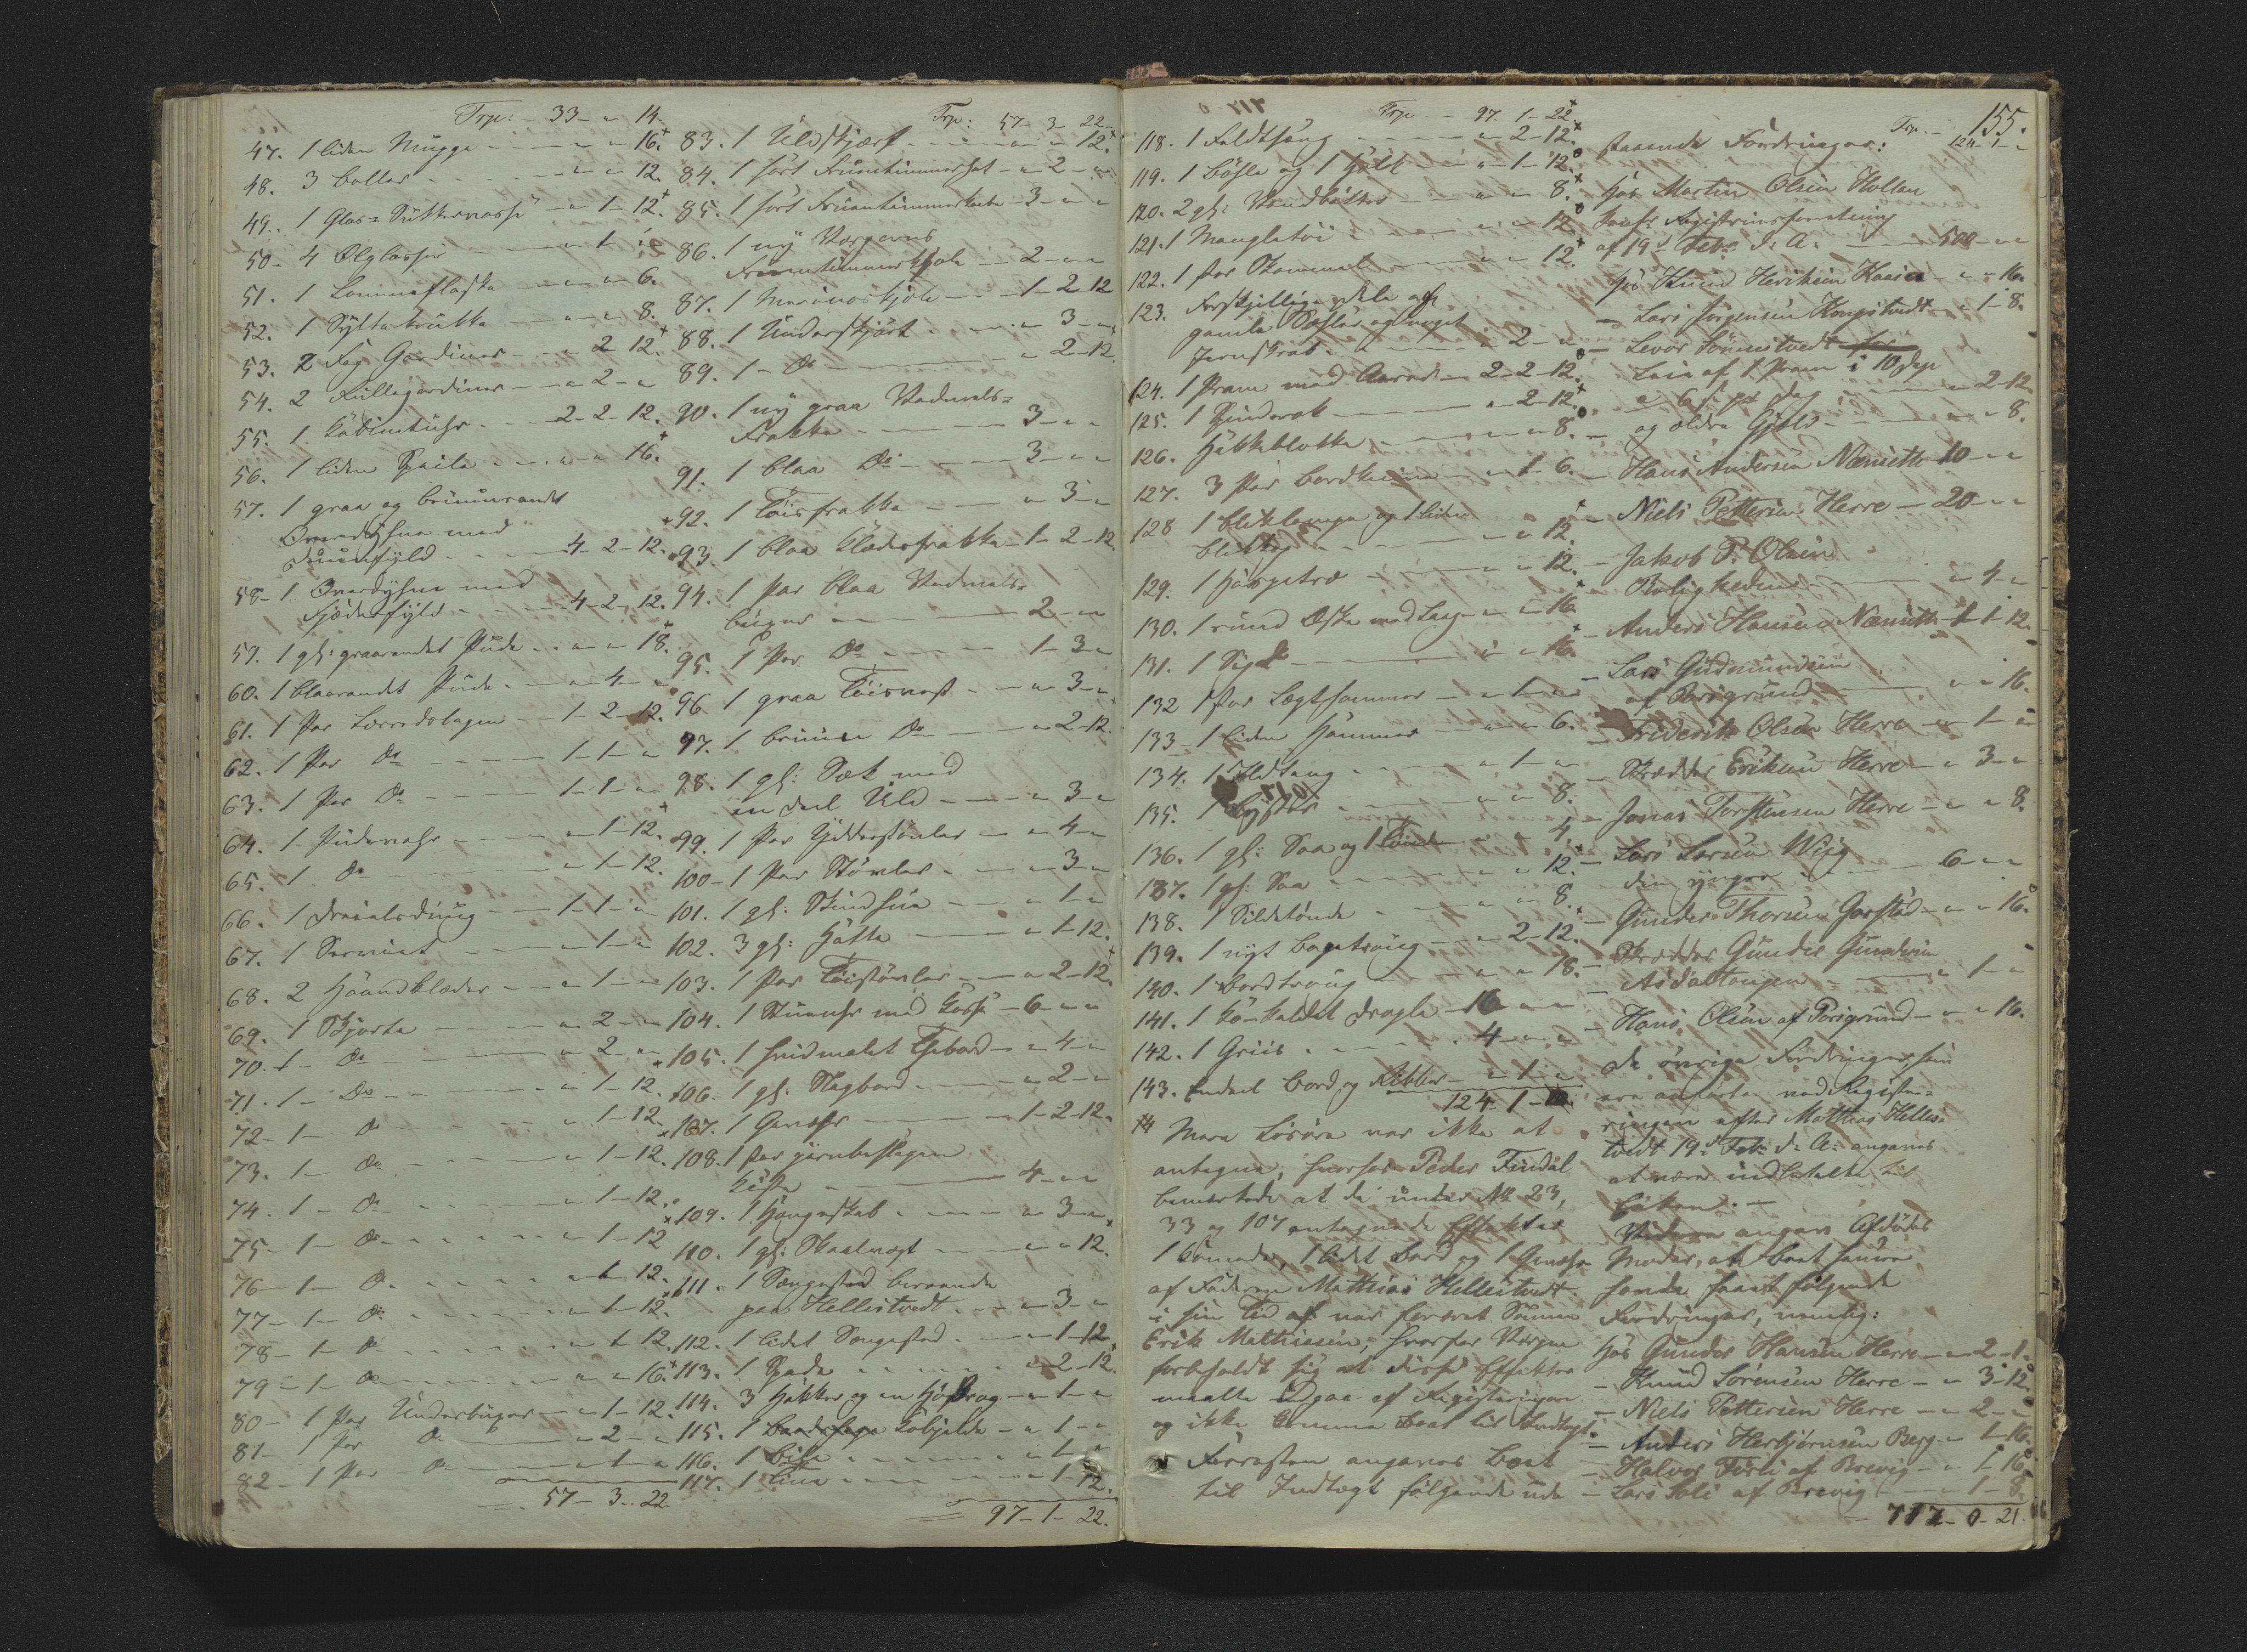 Trp: 33 - " - 14.
47. 1 liden Mugge - - " - " - 16.
48. 3 boller - - - " - " - 12.
49. 1 Glas= Sukkervasse - " - 1 - 12.
50. 4 Ølglasse - " - 1 - "
51. 1 Lommeflaske - " - " - 6.
52. 1 Syltekrukke - " - " - 8.
53. 2 Fag Gardiner - " - 2 - 12.
54. 2 Rullegardiner - " - 2 - "
55. 1 - 2 - 2 - 12.
56. 1 liden Speile - " - " - 16.
57. 1 graa og bruunrandet
Overdyhne med
duunfyld - 4 - 2 - 12.
58 - 1 Overdyhne med
Fjæderfyld - 4 - 2 - 12.
59. 1 gl: graarandet Pude - " - " - 18.
60. 1 blaarandet Pude - " - 4 - "
61. 1 Par Lærredslagen - 1 - 2 - 12.
62. 1 Par Do - 1 - 1 - "
63. 1 Par Do - 1 - 1 - "
64. 1 Pudevahr - " - 1 - 12.
65. 1 Do - " - 1 - 12.
66. 1 dreielsduug - 1 - 1 - "
67. 1 Serviet - " - 1 - "
68. 2 Haandklæder - " - 1 - "
69. 1 Skjorte - " - 2 - "
70. 1 - Do - " - 2 - "
71. 1 - Do - " - 1 - 12.
72 - 1 - Do - " - 1 - 12.
73. 1 - Do - " - 1 - 12.
74. 1 - Do - " - 1 - 12.
75 - 1 - Do - " - 1 - 12
76 - 1 - Do - " - 1 - 12.
77 - 1 - Do - " - 1 - 12.
78 - 1 - Do - " - 1 - 12.
79 - 1 - Do - " - " - 16.
80 - 1 Par Underbuxer - " - 1 - 12.
81 - 1 Par Do - " - 2 - "
82 - 1 Par Do - " - 1 - "
57 - 3 - 22.
Trp: 57 - 3 - 22
83. 1 Uldskjerf - " - " - 12.
84. 1 sort Fruentimmerhat - " - 2 - "
85. 1 sort Fruentimmer - 3 - " - "
86. 1 ny Vergarns
Fruentimmerkjole - 2 - " - "
87. 1 Merinoskjole - 1 - 2 - 12
88. 1 Underskjørt - " - 3 - "
89. 1 - Do - " - 2 - 12.
90. 1 ny graa Vadmels=
Frakke - 3 - " - "
91. 1 blaa Do - 3 - " - "
92. 1 Tøisfrakke - " - 3 - "
93. 1 blaa Klædesfrakke - 1 - 2 - 12
94. 1 Par blaa Vadmels=
buxer - 2 - " - "
95. 1 Par Do - 1 - 3 - "
96 1 graa Tøisvest - " - 3 - "
97. 1 bruun Do - " - 2 - 12.
98. 1 gl: Sæk med
en deel Uld - " - 3 - "
99. 1 Par - " - 4 - "
100 - 1 Par Støvler - " - 3 - "
101. 1 gl: Skindhue - " - 1 - "
102. 3 gl: Hatte - " - 1 - 12.
103. 1 Par Tøistøvler - " - 2 - 12.
104. 1 Stueuhr med Kasse - 6 - " - "
105. 1 hvidmalet - " - 4 - "
106. 1 gl: Slagbord - " - 2 - "
107. 1 Gevæhr - 1 - 2 - 12.
108. 1 stor jernbeslagen
Kiste - 4 - " - "
109. 1 Hængeskab - " - 3 - "
110. 1 gl: Skaalvægt - " - " - 12.
111. 1 Sengested beroende
paa Hellestvedt - " - 3 - "
112. 1 lidet Sengested - " - 1 - 12
113. 1 Spade - " - 2 - 12
114. 3 Hakker og en - " - 1 - "
115. 1 Kobjelde - " - 1 - "
116. 1 Bile - " - 1 - "
117. 1 Tine - " - 1 - 12.
97 - 1 - 22.
Trp - 97. 1 - 22.
118. 1 Feldtseng - " - 2 - 12.
119. 1 Bøsle og 1 - " - 1 - 12.
120. 2 gl: Vandbøtter - " - " - 8.
121. 1 Mangletøi - " - " - 12
122. 1 stor Skammel - " - " - 12.
123. Forskjellige dele af
gamle og noget
Jernskrab - " - 2 - "
124. 1 Pram med Aarer - 2 - 2 - 12.
125. 1 Spinderok - " - 2 - 12.
126. Hakkeblokke - " - " - 8.
127. 3 Par Bordknive - " - 1 - 6.
128 1 bliklampe og 1 liden
- " - " - 12.
129. 1 Haspetræ - " - " - 12.
130. 1 rund Æske med Laag - " - " - 16
131. 1 Sigd - " - " - 16
132 1 stor Lægthammer - " - 1 - "
133 - 1 liden Hammer - " - " - 6.
134. 1 Ildtang - " - 1 - "
135. 1 Lyster - " - " - 8.
136. 1 gl: Saa og 1 Tønde - " - " - 4.
137. 1 gl: Saa - " - " - 12.
138. 1 Sildetønde - " - " - 8.
139. 1 nyt Bagetroug - " - 2 - 12.
140. 1 Bordtroug - " - " - 18.
141. 1 Ko kaldet Dragle - 16 - " - "
142. 1 Griis - 4 - " - "
143. Endeel Bord og Ribber - " - 1 - "
124. 1 - 10.
Mere Løsøre var ikke at
antegne, hvorhos Peder Findal
bemærkede at de under No 23,
33 og 107 antegnede Effekter
1 Komode, 1 lidet Bord og 1 Gevæhr
af Faderen Mathias Hellestvedt
i sin Tid af var foræret Sønnen
Erik Mathiesen, hvorfor Værgen
forbeholdt sig at disse Effekter
maatte udgaae af Registeringen
og ikke komme Boet til Indtægt.
Forresten angaves Boet
til Indtægt følgende ude
155.
Trp. 124 - 1 - "
staaende Fordringer:
Hos Martin Olsen Hollen
Registeringsforretning
af 19d Febr. d: A: - 500 - " - "
Hos Knud Henriksen Kaasa - " - " - 16.
- Lars Jørgensen Kongstvedt - " - 1 - 8.
- Levor Sønnistvedt
Leie af 1 Pram i 10 dage
a 6 s pr dag - " - 2 - 12
- og ældre Gjæld - " - " - 8.
- Hans Andersen Nenseth 10 - " - "
- Niels Pettersen Herre - 20 - " - "
- Jakob P. Olsen
Roligheden - " - 4 - "
- Anders Hansen Nenseth - 1 - 1 - 12.
- Lars Gudmundsen
af Porsgrund - " - " - 16.
- Friderik Olsen Herre - " - 1 - "
- Skrædder Eriksen Herre - " - 3 - "
- Jonas Torstensen Herre - " - " - 8.
- Lars Larsen Wiig
den yngre - 6 - " - "
- Gunder Thorsen Garstad - " - " - 16.
- Skrædder Gunder Gundersen
Aasdaltangen - " - 1 - "
- Hans Olsen af Porsgrund - " - " - 16.
De øvrige Fordringer som
ere anførte ved Registe=
ringen efter Mathias Helles=
tvedt 19d Febr. d: A: angaves
at være indbetalte til
Enken. -
Videre angav Afdødes
Moder, at Boet havde
følgende
Fordringer, nemlig:
Hos Gunder Hansen Herre - " - 2 - 1.
- Knud Sørensen Herre - " - 3 - 12.
- Niels Pettersen Herre - " - 2 - "
- Anders Herbjørnsen Berg - " - 1 - 16.
- Halvor Førli af Brevig - " - 1 - 16.
- Lars Soli af Brevig - " - 1 - 8.
717 - 0 - 21.